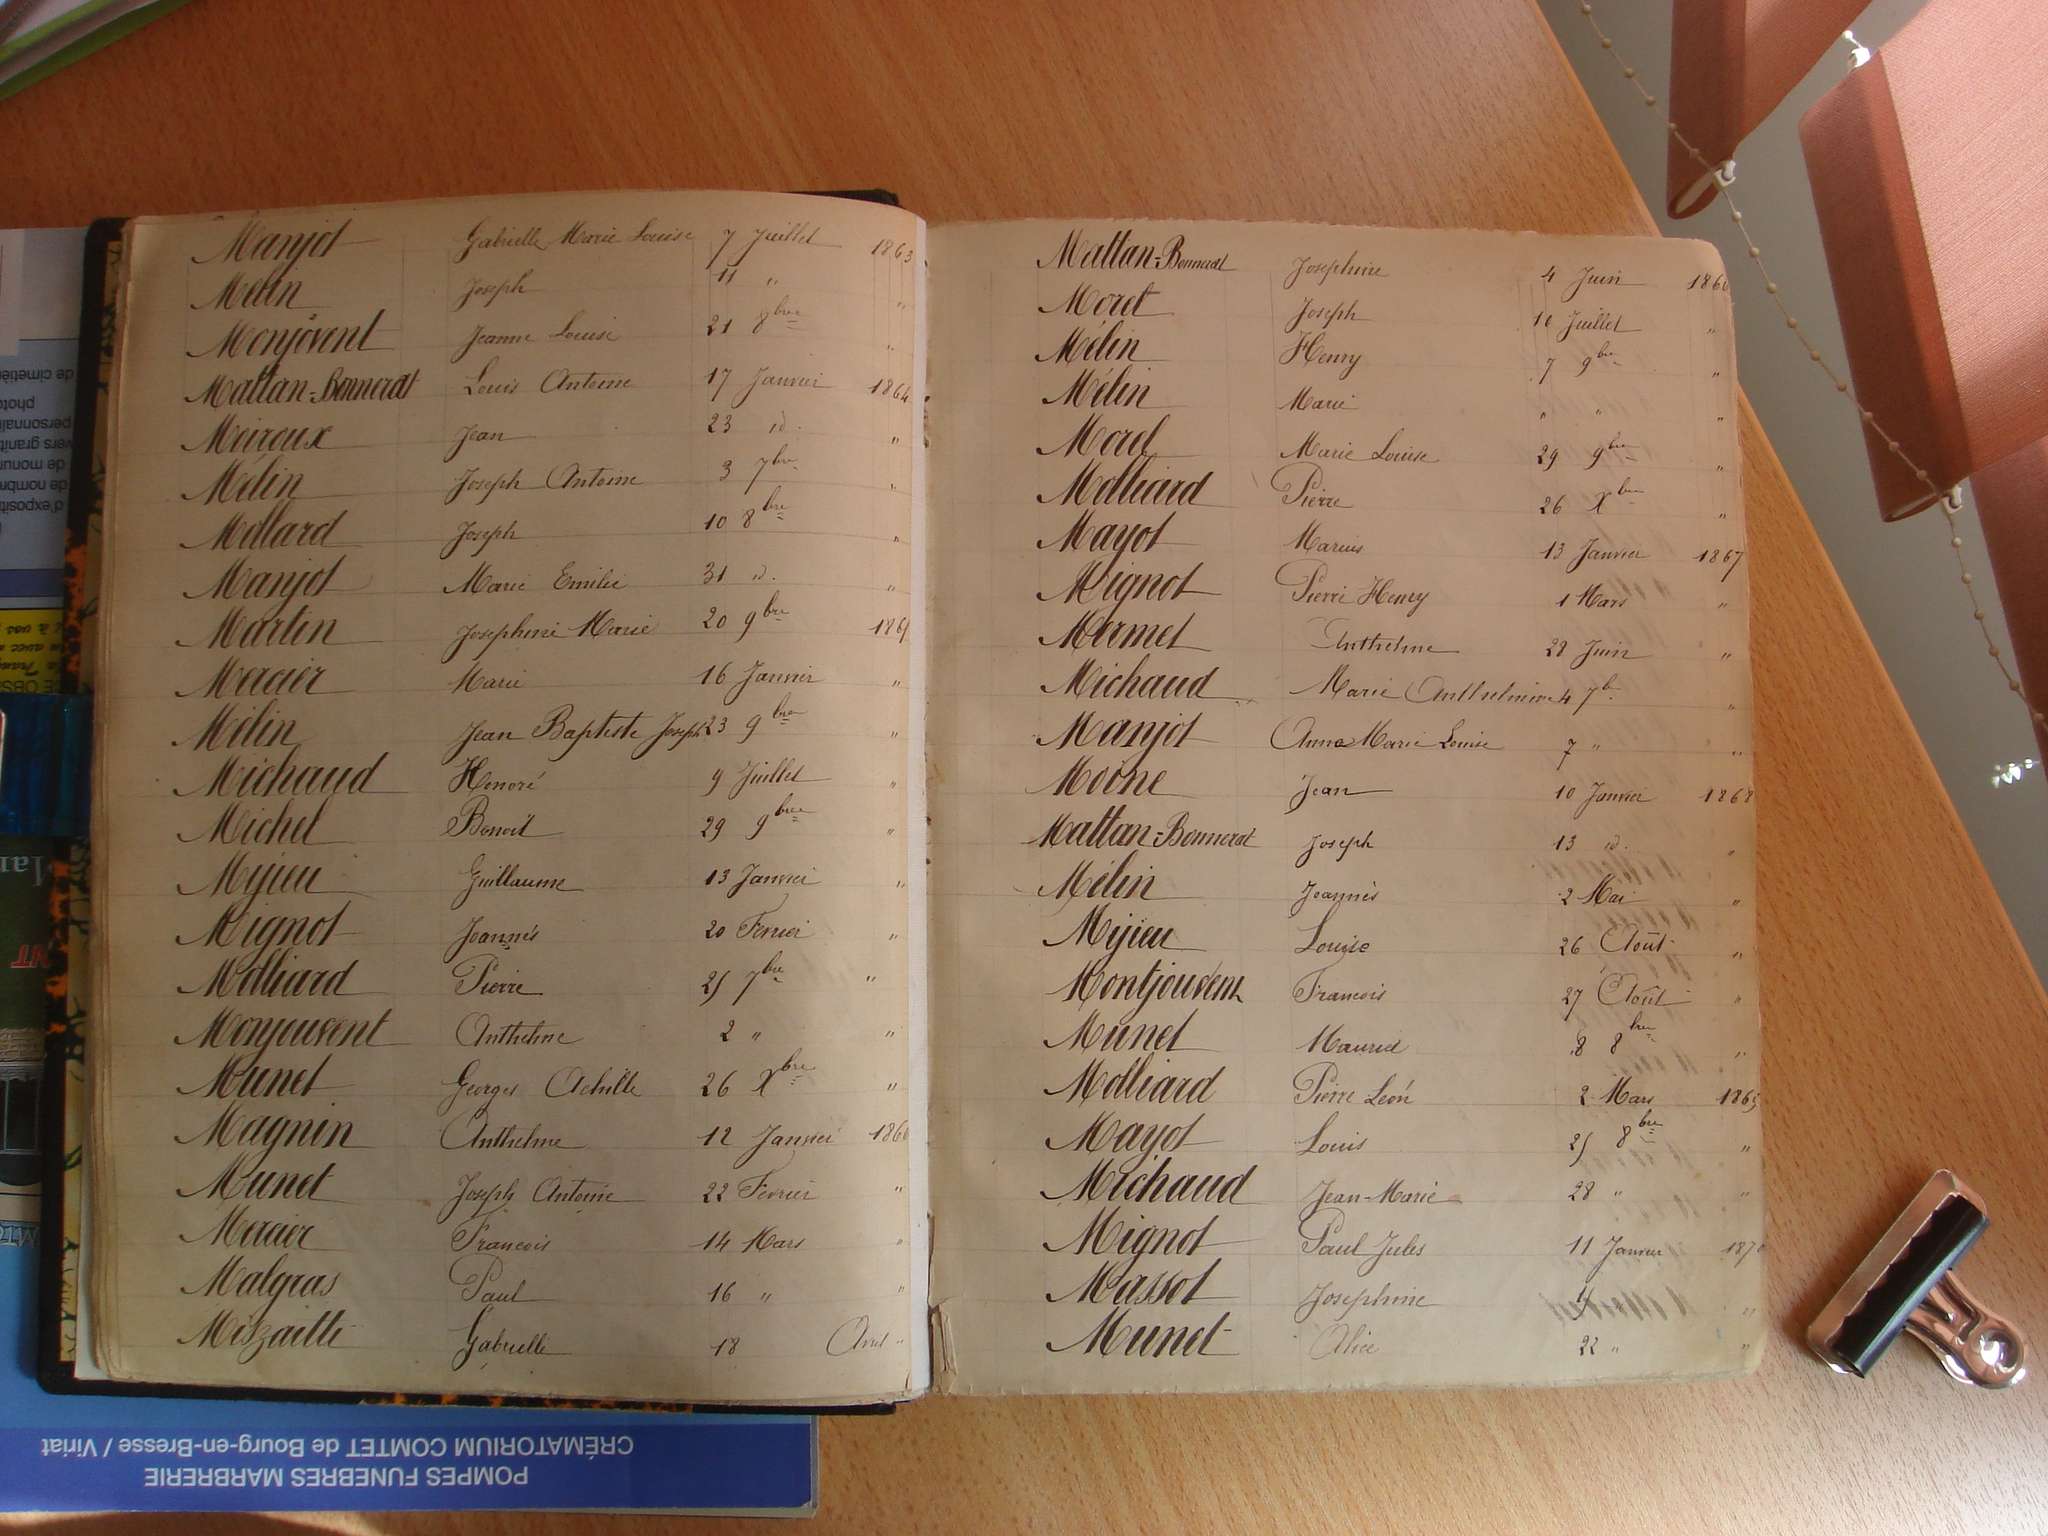 Manjot Gabrielle Marie Louise 7 Juillet 1863
Mélin Joseph 11 " "
Monjovent Jeanne Louise 21 8bre "
Mattan-Bonnerat Louis Antoine 17 Janvier 1864
Moiroux Jean 23 id. "
Mélin Joseph Antoine 3 7bre "
Mollard Joseph 10 8bre "
Manjot Marie Emilie 31 id. "
Martin Josephine Marie 20 9bre 186
Mercier Marie 16 Janvier "
Mélin Jean Baptiste Joseph 23 9bre "
Michaud Honoré 9 Juillet "
Michel Benoit 29 9bre "
Mijieu Guillaume 13 Janvier "
Mignot Joannès 20 Fevrier "
Molliard Pierre 25 7bre "
Monjouvent Anthelme 2 " "
Munet Georges Achille 26 Xbre "
Magnin Anthelme 12 Janvier 1866
Munet Joseph Antoine 22 Fevrier "
Mercier Francois 14 Mars "
Malgras Paul 16 " "
Gabrielle 18 Avril "
Mattan-Bonnerat Josephine 4 Juin 1866
Moret Joseph 16 Juillet "
Mélin Henry 7 9bre "
Mélin Marie " " "
Morel Marie Louise 29 9bre "
Molliard Pierre 26 Xbre "
Mayot Marius 13 Janvier 1867
Mignot Pierre Henry 1 Mars "
Mermet Anthelme 28 Juin "
Michaud Marie Anthelmine 4 7b. "
Manjot Anna Marie Louise 7 " "
Moine Jean 10 Janvier 1868
Mattan-Bonnerat Joseph 13 id. "
Mélin Jeannès 2 Mai "
Mijieu Louise 26 Août "
Montjouvent Francois 27 Août "
Munet Maurice 8 8bre "
Molliard Pierre Léon 2 Mars 1869
Mayot Louis 25 8bre "
Michaud Jean-Marie 28 " "
Mignot Paul Jules 11 Janvier 1870
Massot Josephine "
Munet Alice 22 " "
CRÉMATORIUM COMTET de Bourg-en-Bresse / Viriat
POMPES FUNEBRES MARBRERIE